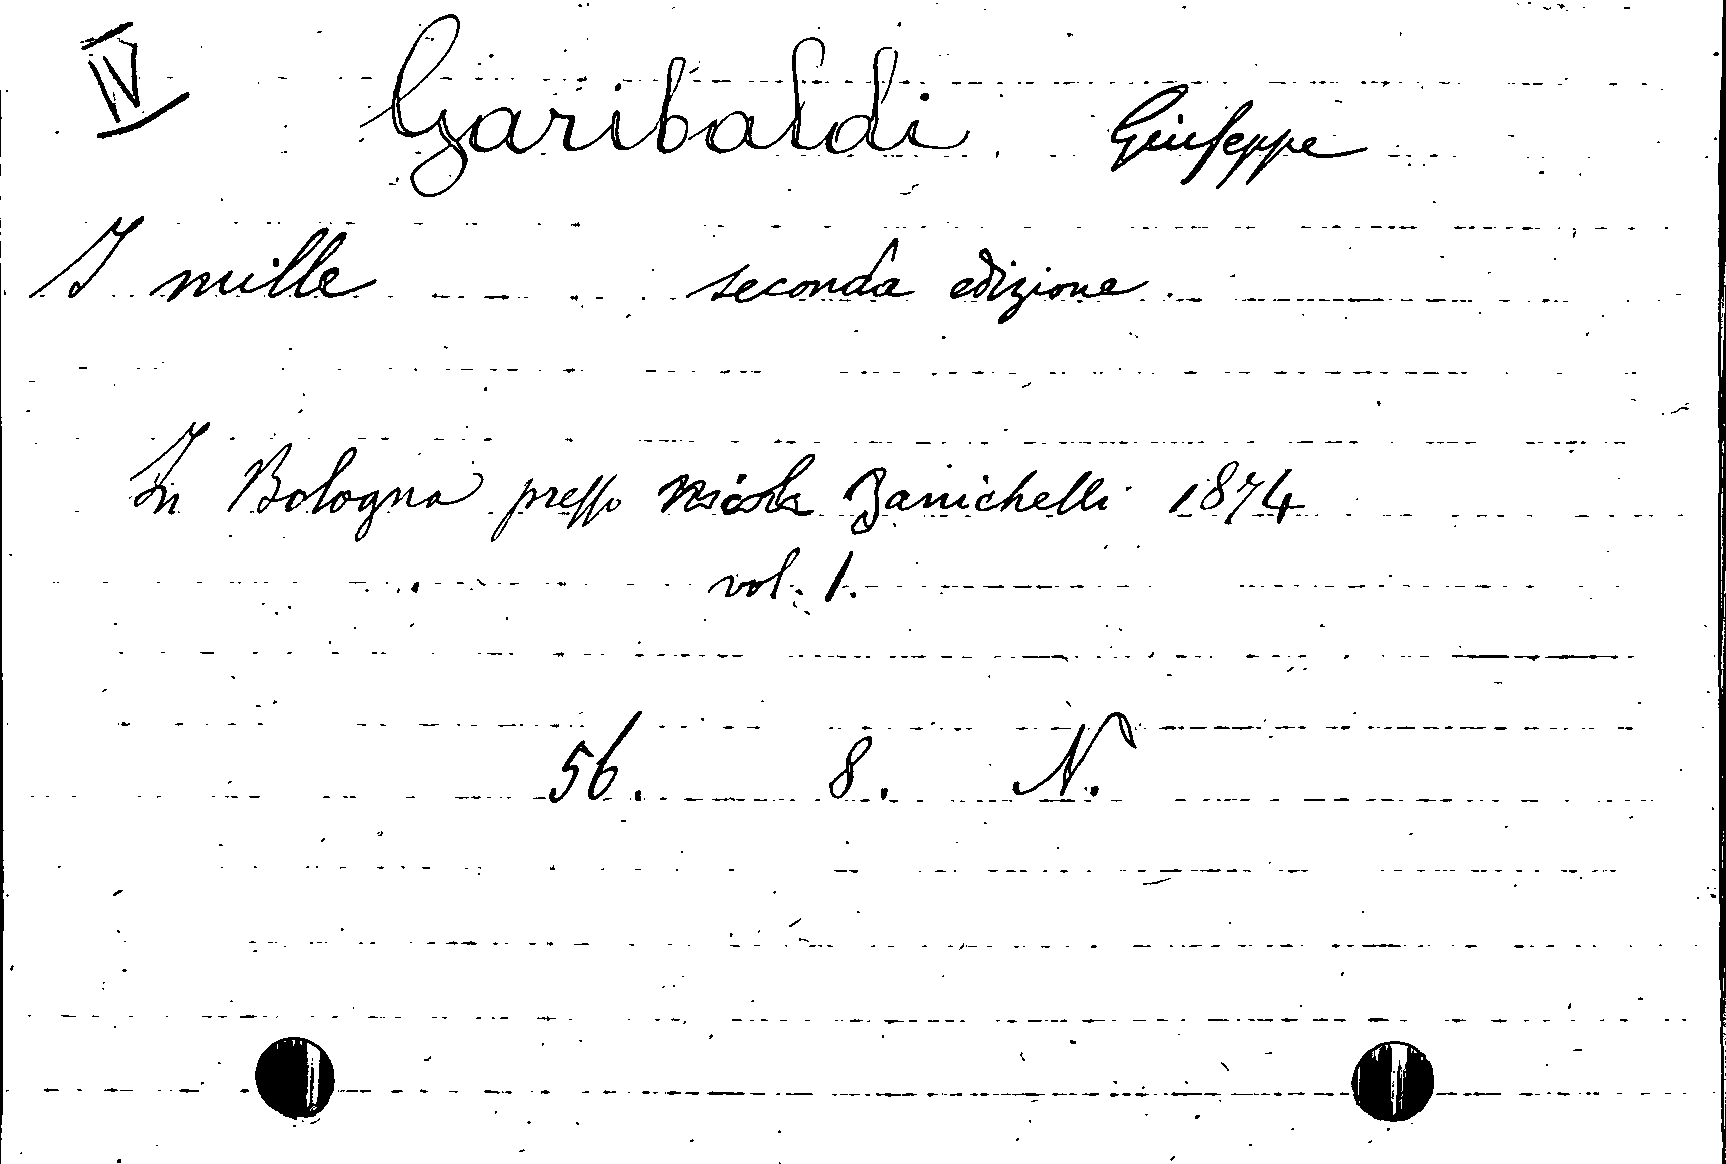 IV Garibaldi Giuseppe
I mille seconda edizione
In Bologna presso Nicola Zanichelli 1874
vol. 1.
56. 8. N.